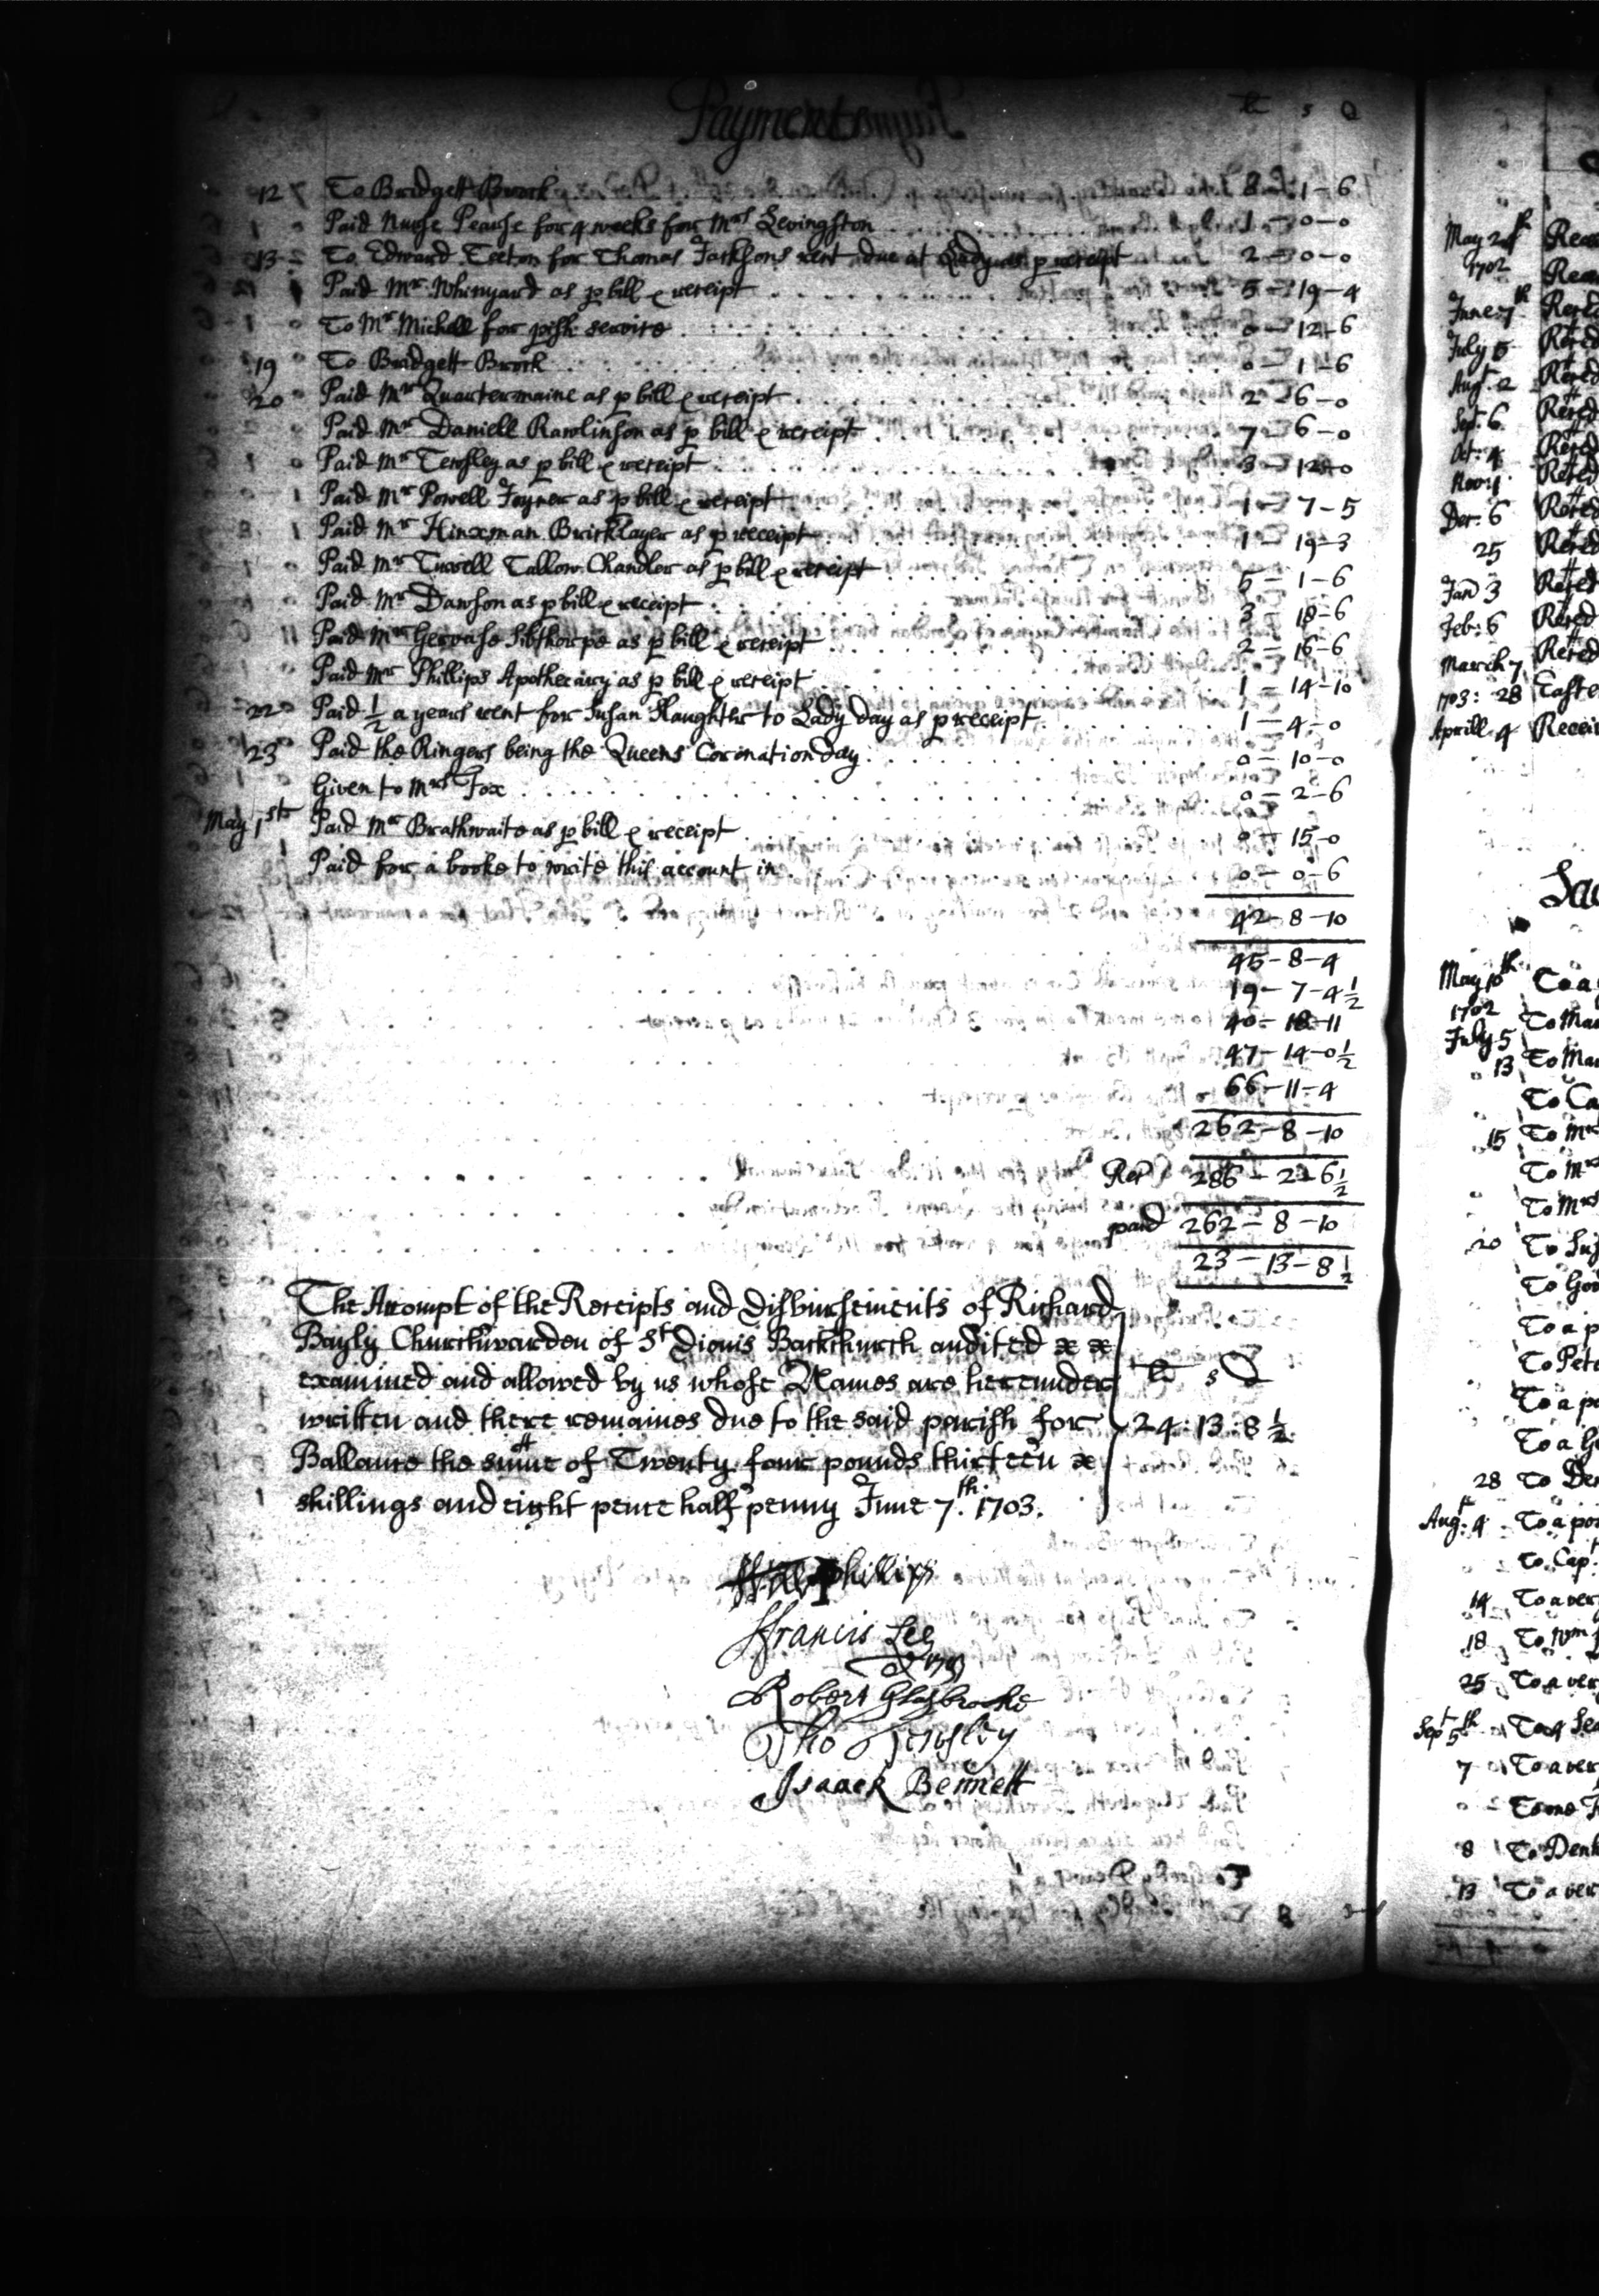 Payments
li s d
12 To Bridgett Brock 0-1-6
Paid Nurse Pearse for 4 weeks for Mrs Levingston 1-0-0
13 To Edward Teeton for Thomas Jacksons rent due at Lady as p receipt 2-0-0
Paid Mr Whinyard as p bill & receipt 5-19-4
To Mr Michell for pish service 0-12-6
19 To Bridgett Brock 0-1-6
20 Paid Mr Quartermaine as p bill & receipt 2-6-0
Paid Mr Daniell Rawlinson as p bill & receipt 7-6-0
Paid Mr Tewsley as p bill & receipt 3-12-0
Paid Mr Powell Joyner as p bill & receipt 1-7-5
Paid Mr Hinxman Bricklayer as p receipt 1-19-3
Paid Mr Turvell Tallow Chandler as p bill & receipt 5-1-6
Paid Mr Dawson as p bill & receipt 3-18-6
Paid Mr Gervase Sibthorpe as p bill & receipt 2-16-6
Paid Mr Phillips Apothecary as p bill & receipt 1-14-10
22 Paid ½ a years rent for Susan Slaughter to Lady day as p receipt 1-4-0
23 Paid the Ringers being the Queens Coronation day 0-10-0
Given to Mrs Fox 0-2-6
May 1st Paid Mr Brathwaite as p bill & receipt 0-15-0
Paid for a booke to write this account in 0-0-6
42-8-10
45-8-4
19-7-4½
40-18-11
47-14-0½
66-11-4
262-8-10
Rec 286-2-6½
paid 262-8-10
23-13-8½
The Accompt of the Receipts and Disbursements of Richard
Bayly Churchwarden of St Dionis Backchurch audited
examined and allowed by us whose Names are hereunder
written and there remaines due to the said parish for
Ballance the sume of Twenty four pounds thirteen
shillings and eight pence half penny June 7th. 1703.
li s d
24:13:8½
Phillips
Ffrancis Lee
1703
Robert Glasbrooke
Tho Tewsley
Isaack Bennett
May
1702
June 7th
July 5
Augt. 2
Sept. 6
Oct: 4
Nov: 1
Dec: 6
25
Jan 3
Feb: 6
March 7
1703: 28 Easte
Aprill 4 Receiv
May 10th To a
1702 To Mar
July 5 To Mar
13
To Ca
15 To Mr
To Mr
To Mrs
20 To Sus
To Goo
To a p
To Pete
To a po
To a
28 To Den
Aug: 4 To a poo
To Cap
14 To a very
18 To Wm
25 To a ver
Sept 5th To 4 Sea
7 To a ver
To one
8 To Denh
13 To a ver